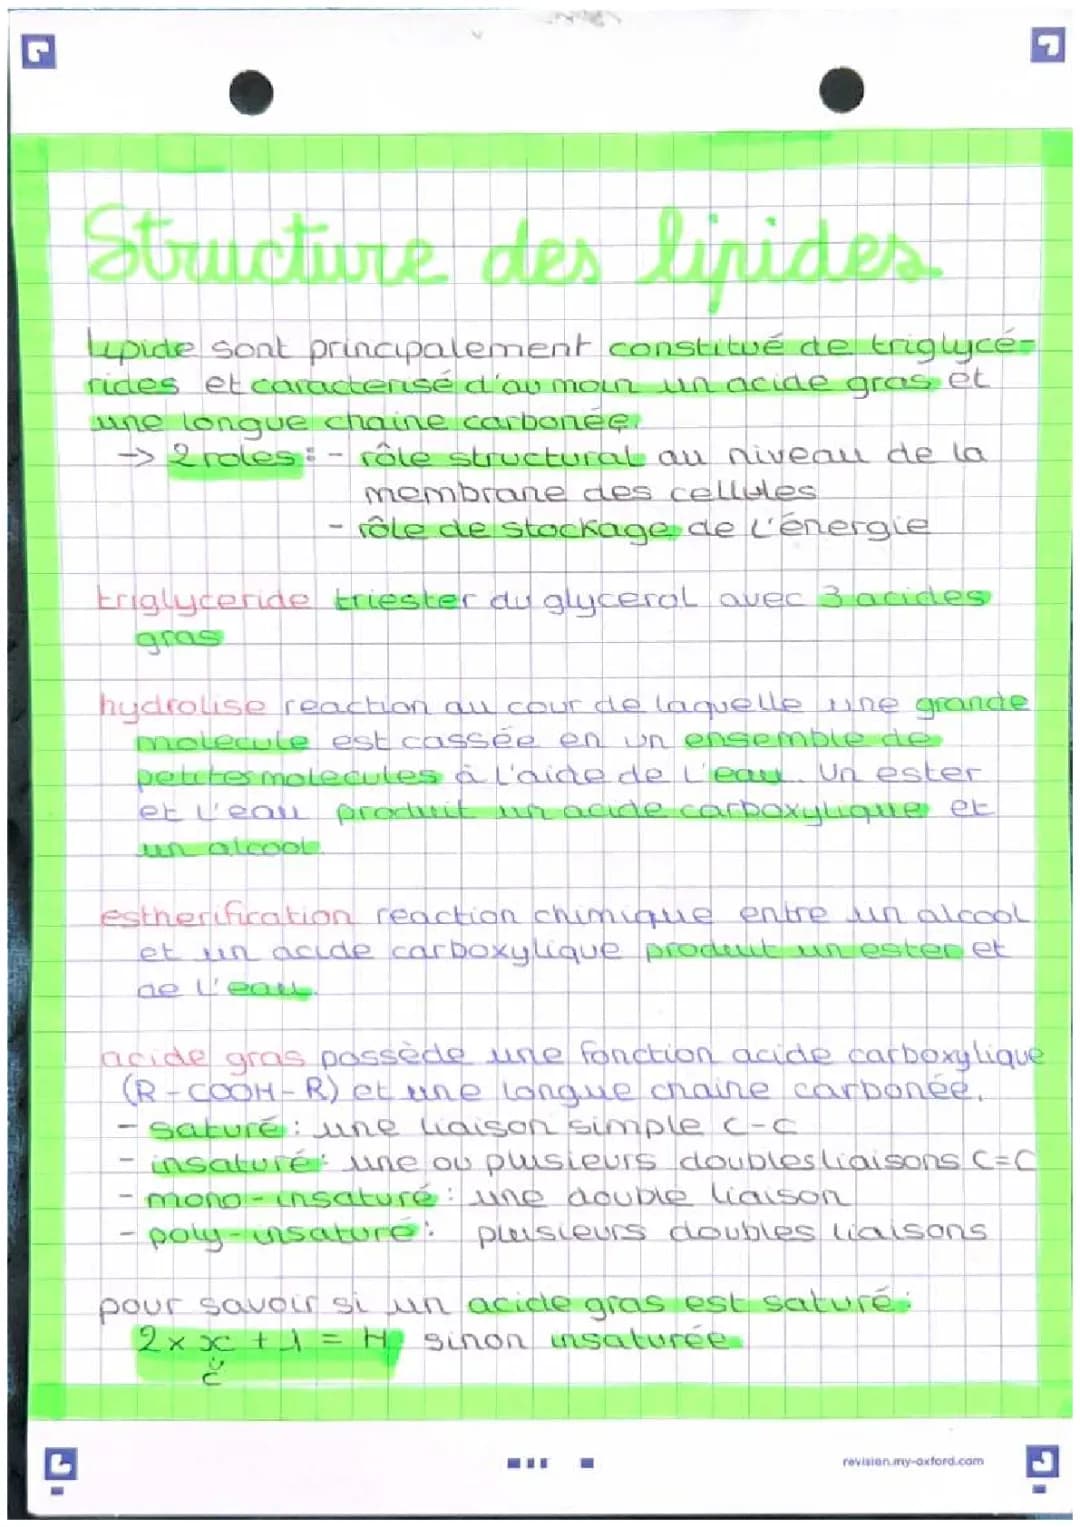 Structure des lipides
Lipide sont principalement constitué de triglycé-
rides et caractérisé d'au moin un acide gras et
une longue chaine carbonée.
-> 2 roles : - rôle structural au niveau de la
membrane des cellules
- rôle de stockage de l'énergie
triglyceride triester du glycerol avec 3 acides
gras
hydrolise reaction au cour de laquelle une grande
molecule est cassée en un ensemble de
petites molecules à l'aide de l'eau. Un ester
et l'eau produit un acide carboxylique et
un alcool.
estherification reaction chimique entre un alcool
et un acide carboxylique produit un ester et
de l'eau.
acide gras possède une fonction acide carboxylique
(R-COOH-R) et une longue chaine carbonée.
- saturé : une liaison simple C-C
- insaturé : une ou plusieurs doubles liaisons C=C
- mono-insaturé : une double liaison
- poly-insaturé : plusieurs doubles liaisons
pour savoir si un acide gras est saturé :
2 x x + 1 = H, sinon insaturée
C
revision.my-oxford.com